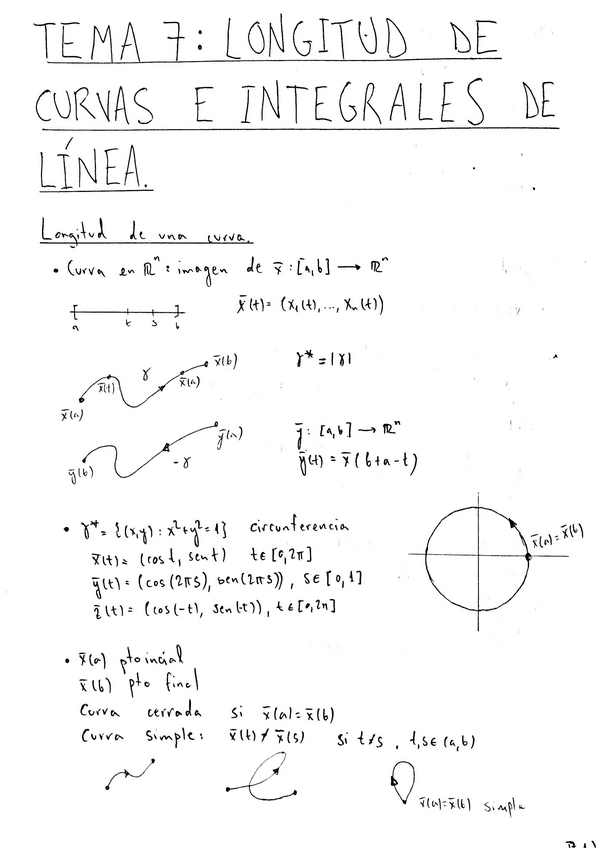 TEMA 7: LONGITUD DE
CURVAS E INTEGRALES DE
LÍNEA.
Longitud de una curva.
• Curva en ℝⁿ: imagen de x̄: [a,b] → ℝⁿ
x̄(t) = (x₁(t), ..., xₙ(t))
a t s b
x̄(a) x̄(t) γ x̄(a) x̄(b)
γ* = |γ|
ȳ(b) -γ ȳ(a)
ȳ: [a,b] → ℝⁿ
ȳ(t) = x̄(b+a-t)
• γ* = {(x,y): x²+y²=1} circunferencia
x̄(t) = (cos t, sen t) t∈[0,2π]
ȳ(t) = (cos(2πs), sen(2πs)), s∈[0,1]
z̄(t) = (cos(-t), sen(-t)), t∈[0,2π]
x̄(a)=x̄(b)
• x̄(a) pto incial
x̄(b) pto final
Curva cerrada si x̄(a)=x̄(b)
Curva simple: x̄(t)≠x̄(s) si t≠s, t,s∈(a,b)
x̄(a)=x̄(b) simple